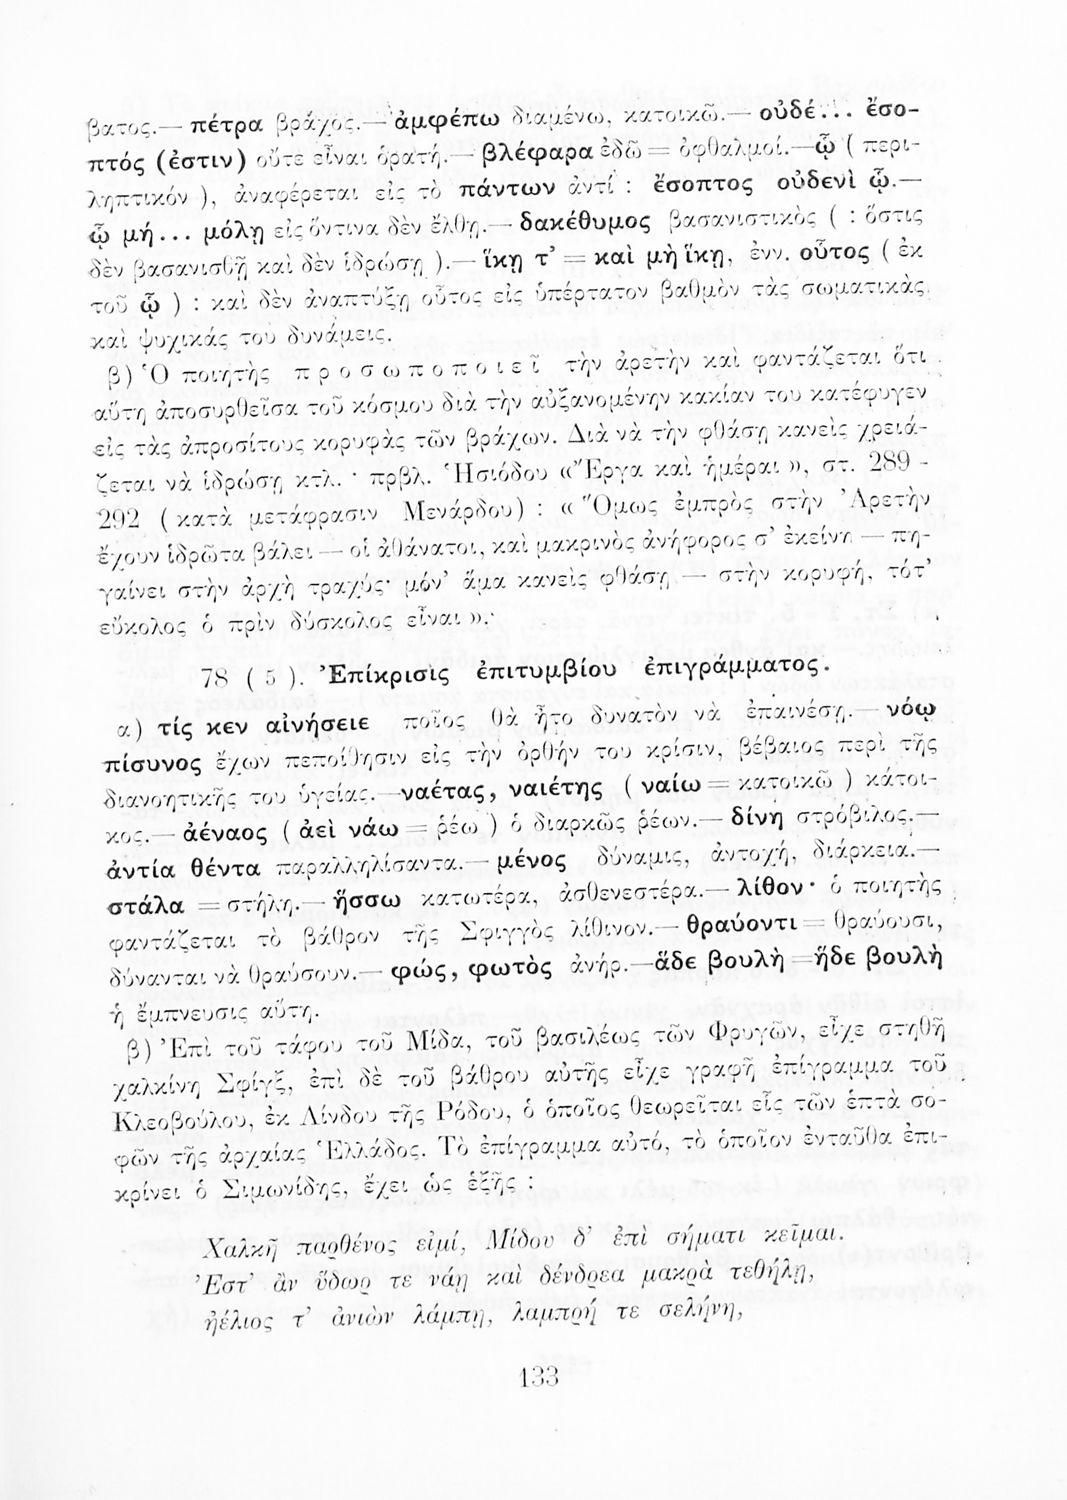 βατος.— πέτρα βράχος.— ἀμφέπω διαμένω, κατοικῶ.— οὐδέ... ἔσο-
πτός (ἐστιν) οὔτε εἶναι ὁρατή.— βλέφαρα ἐδῶ = ὀφθαλμοί.— ᾧ ( περι-
ληπτικόν ), ἀναφέρεται εἰς τὸ πάντων ἀντί : ἔσοπτος οὐδενὶ ᾧ.—
ᾧ μή... μόλῃ εἰς ὅντινα δὲν ἔλθῃ.— δακέθυμος βασανιστικὸς ( : ὅστις
δὲν βασανισθῇ καὶ δὲν ἱδρώσῃ ).— ἵκῃ τ' = καὶ μὴ ἵκῃ, ἐνν. οὗτος ( ἐκ
τοῦ ᾧ ) : καὶ δὲν ἀναπτύξῃ οὗτος εἰς ὑπέρτατον βαθμὸν τὰς σωματικὰς
καὶ ψυχικάς του δυνάμεις.
β) Ὁ ποιητὴς προσωποποιεῖ τὴν ἀρετὴν καὶ φαντάζεται ὅτι
αὕτη ἀποσυρθεῖσα τοῦ κόσμου διὰ τὴν αὐξανομένην κακίαν του κατέφυγεν
εἰς τὰς ἀπροσίτους κορυφὰς τῶν βράχων. Διὰ νὰ τὴν φθάσῃ κανεὶς χρειά-
ζεται νὰ ἱδρώσῃ κτλ. · πρβλ. Ἡσιόδου «Ἔργα καὶ ἡμέραι», στ. 289 -
292 ( κατὰ μετάφρασιν Μενάρδου) : « Ὅμως ἐμπρὸς στὴν Ἀρετὴν
ἔχουν ἱδρῶτα βάλει — οἱ ἀθάνατοι, καὶ μακρινὸς ἀνήφορος σ' ἐκείνη — πη-
γαίνει στὴν ἀρχὴ τραχύς· μόν' ἅμα κανεὶς φθάσῃ — στὴν κορυφή, τότ'
εὔκολος ὁ πρὶν δύσκολος εἶναι ».
78 ( 5 ). Ἐπίκρισις ἐπιτυμβίου ἐπιγράμματος.
α) τίς κεν αἰνήσειε ποῖος θὰ ἦτο δυνατὸν νὰ ἐπαινέσῃ.— νόῳ
πίσυνος ἔχων πεποίθησιν εἰς τὴν ὀρθήν του κρίσιν, βέβαιος περὶ τῆς
διανοητικῆς του ὑγείας.— ναέτας, ναιέτης ( ναίω = κατοικῶ ) κάτοι-
κος.— ἀέναος ( ἀεὶ νάω = ῥέω ) ὁ διαρκῶς ῥέων.— δίνη στρόβιλος.—
ἀντία θέντα παραλληλίσαντα.— μένος δύναμις, ἀντοχή, διάρκεια.—
στάλα = στήλη.— ἥσσω κατωτέρα, ἀσθενεστέρα.— λίθον· ὁ ποιητὴς
φαντάζεται τὸ βάθρον τῆς Σφιγγὸς λίθινον.— θραύοντι = θραύουσι,
δύνανται νὰ θραύσουν.— φώς, φωτὸς ἀνήρ.— ἅδε βουλὴ = ἥδε βουλὴ
ἡ ἔμπνευσις αὕτη.
β) Ἐπὶ τοῦ τάφου τοῦ Μίδα, τοῦ βασιλέως τῶν Φρυγῶν, εἶχε στηθῆ
χαλκίνη Σφίγξ, ἐπὶ δὲ τοῦ βάθρου αὐτῆς εἶχε γραφῆ ἐπίγραμμα τοῦ
Κλεοβούλου, ἐκ Λίνδου τῆς Ρόδου, ὁ ὁποῖος θεωρεῖται εἷς τῶν ἑπτὰ σο-
φῶν τῆς ἀρχαίας Ἑλλάδος. Τὸ ἐπίγραμμα αὐτό, τὸ ὁποῖον ἐνταῦθα ἐπι-
κρίνει ὁ Σιμωνίδης, ἔχει ὡς ἑξῆς :
Χαλκῆ παρθένος εἰμί, Μίδου δ' ἐπὶ σήματι κεῖμαι.
Ἔστ' ἂν ὕδωρ τε νάῃ καὶ δένδρεα μακρὰ τεθήλῃ,
ἠέλιος τ' ἀνιὼν λάμπῃ, λαμπρή τε σελήνη,
133